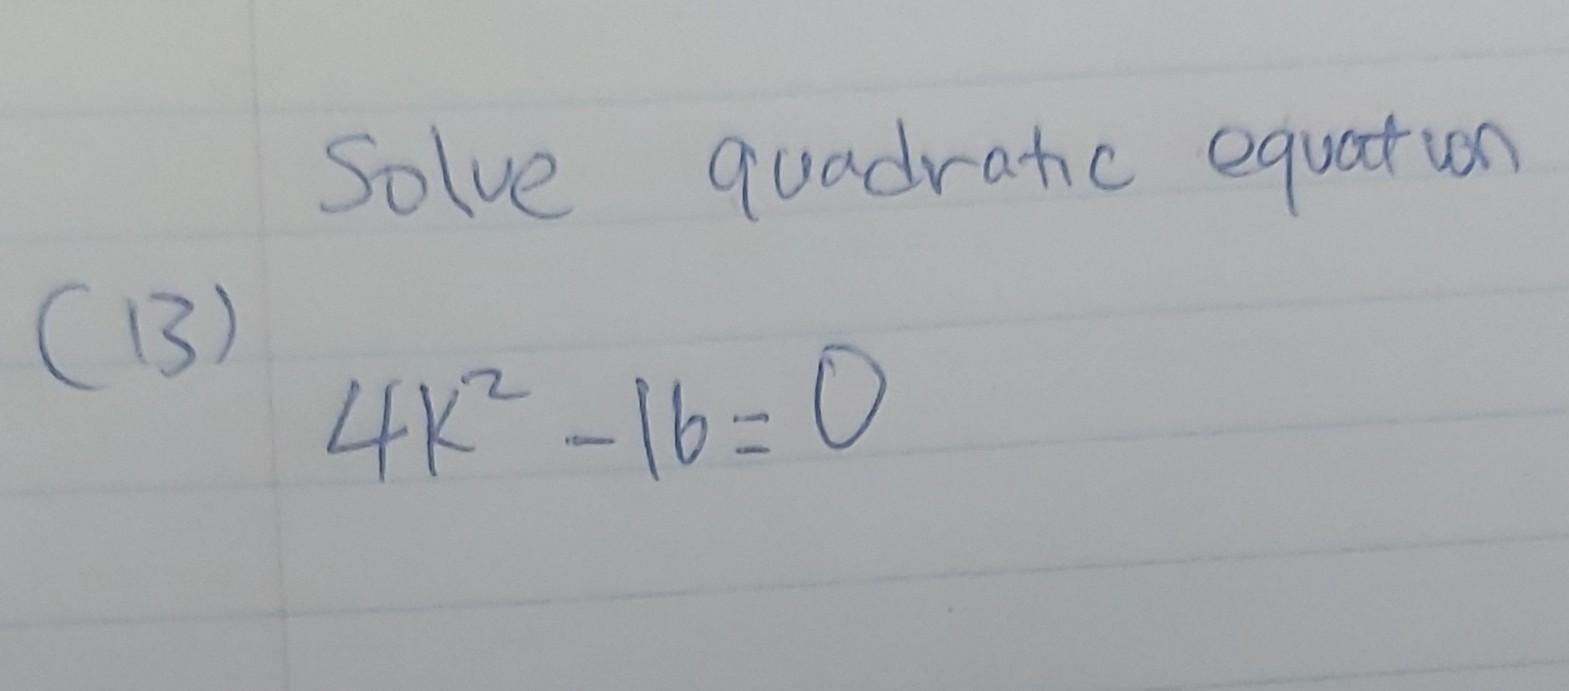 Solve quadratic equation
(13)
4k² - 16 = 0